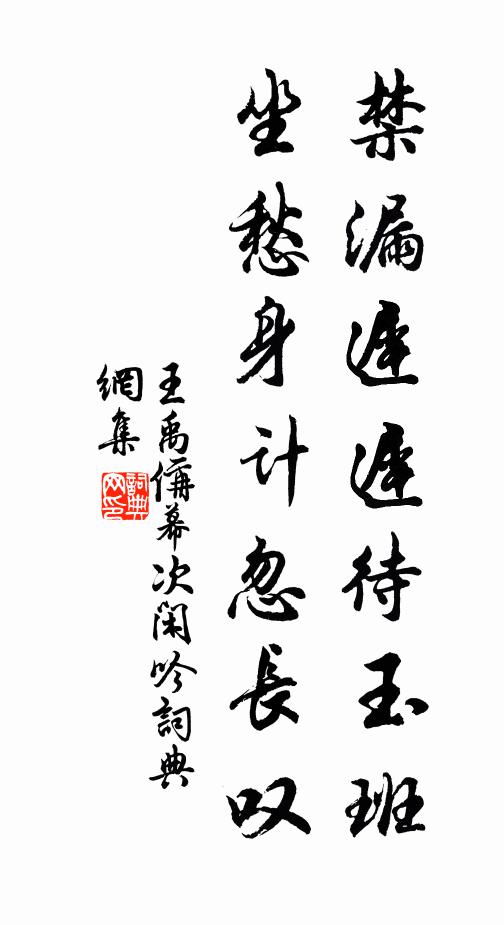 禁漏遲遲待玉班
坐愁身计忽長叹
王禹偁幕次閑吟詞典
網集
詞典
网印